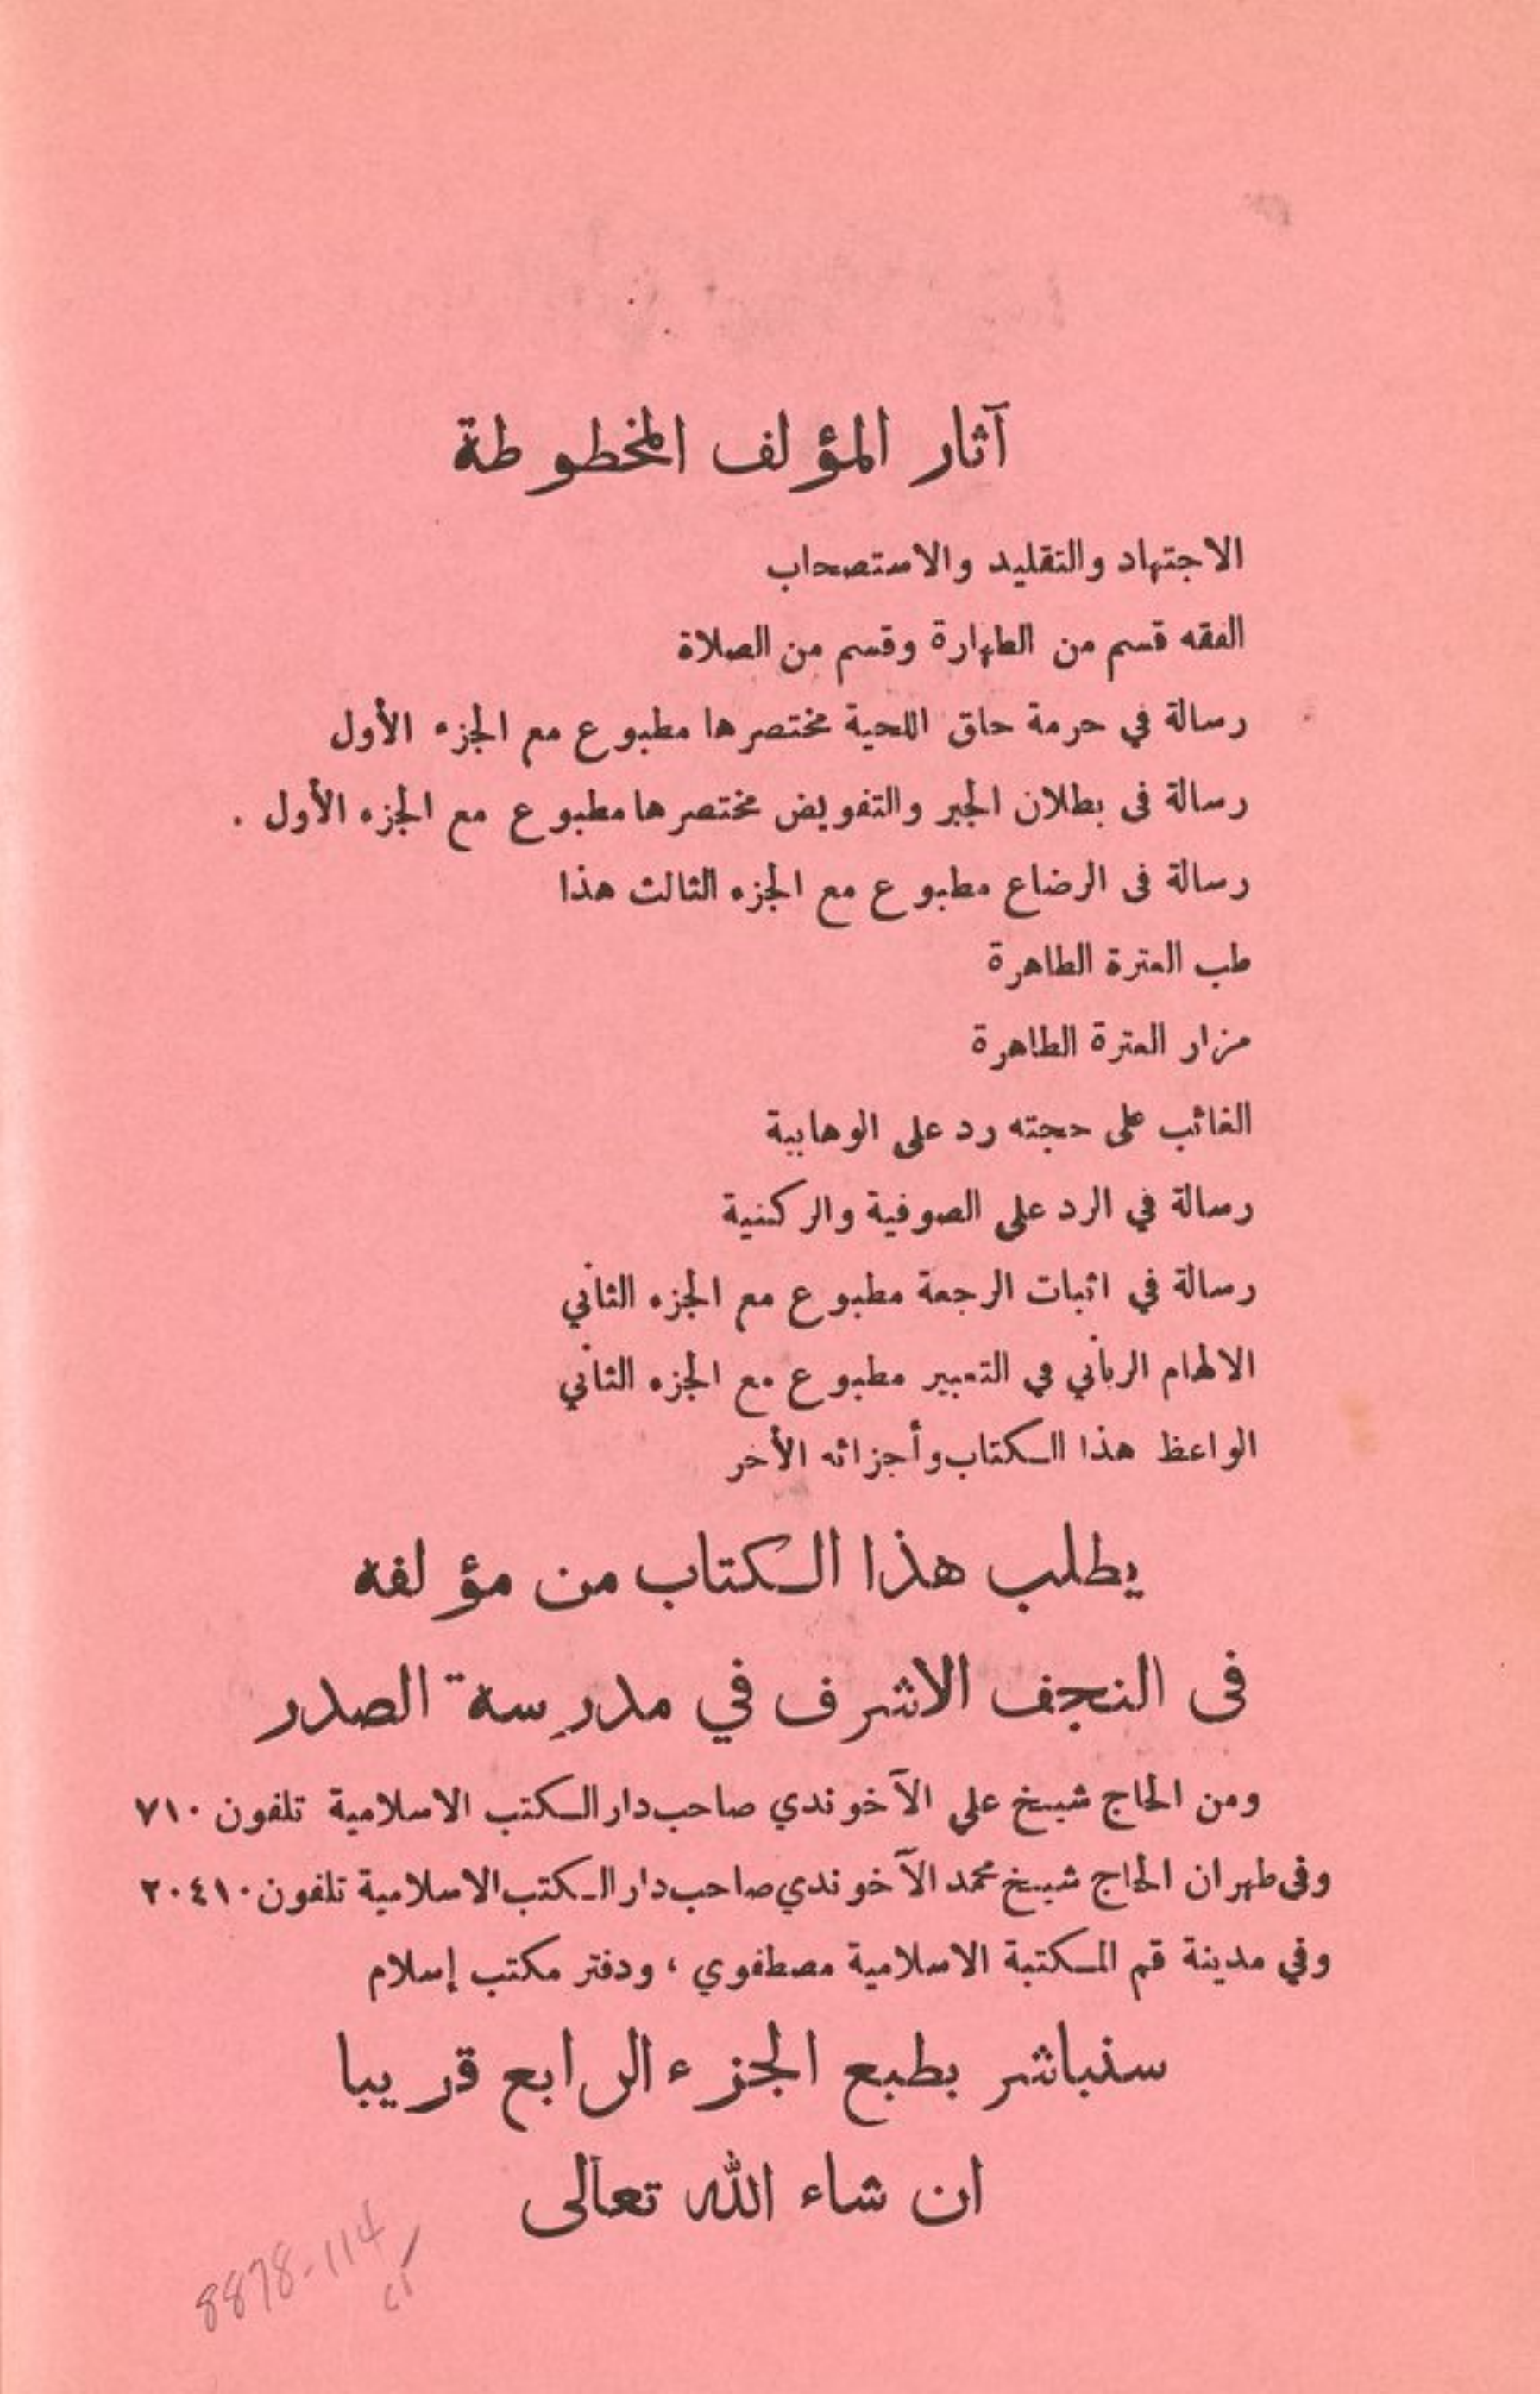 آثار المؤلف المخطوطة
الاجتهاد والتقليد والاستصحاب
الفقه قسم من الطهارة وقسم من الصلاة
رسالة في حرمة حلق اللحية مختصرها مطبوع مع الجزء الأول
رسالة فى بطلان الجبر والتفويض مختصرها مطبوع مع الجزء الأول .
رسالة فى الرضاع مطبوع مع الجزء الثالث هذا
طب العترة الطاهرة
مزار العترة الطاهرة
الغائب على حجته رد على الوهابية
رسالة في الرد على الصوفية والركنية
رسالة في اثبات الرجعة مطبوع مع الجزء الثاني
الالهام الرباني في التعبير مطبوع مع الجزء الثاني
الواعظ هذا الكتاب وأجزائه الأخر
يطلب هذا الكتاب من مؤلفه
فى النجف الاشرف في مدرسة الصدر
ومن الحاج شيخ علي الآخوندي صاحب دار الكتب الاسلامية تلفون ٧١٠
وفى طهران الحاج شيخ محمد الآخوندي صاحب دار الكتب الاسلامية تلفون ٢٠٤١٠
وفي مدينة قم المكتبة الاسلامية مصطفوي ، ودفتر مكتب إسلام
سنباشر بطبع الجزء الرابع قريبا
ان شاء الله تعالى
8878-114